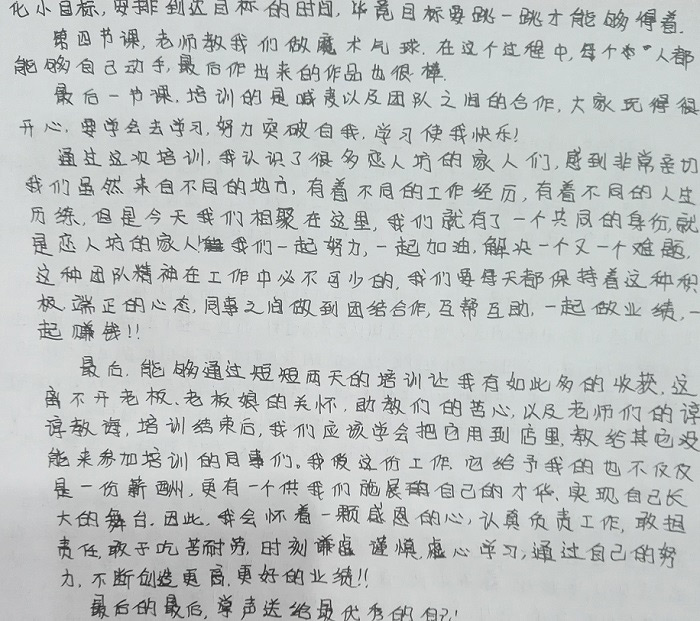 化小目标,要排到达目标的时间,毕竟目标要跳一跳才能够得着.
第四节课,老师教我们做魔术气球.在这个过程中,每个"人都
能够自己动手,最后作出来的作品也很棒.
最后一节课.培训的是喊麦以及团队之间的合作.大家玩得很
开心.要学会去学习,努力突破自我.学习使我快乐!
通过这次培训,我认识了很多恋人坊的家人们,感到非常亲切
我们虽然来自不同的地方,有着不同的工作经历,有着不同的人生
历练,但是今天我们相聚在这里,我们就有了一个共同的身份,就
是恋人坊的家人,我们一起努力,一起加油,解决一个又一个难题,
这种团队精神在工作中必不可少的,我们要每天都保持着这种积
极.端正的心态,同事之间做到团结合作,互帮互助,一起做业绩,一
起赚钱!!
最后.能够通过短短两天的培训让我有如此多的收获,这
离不开老板.老板娘的关怀.助教们的苦心,以及老师们的谆
谆教诲,培训结束后,我们应该学会把它用到店里.教给其它没
能来参加培训的同事们.我做这份工作.它给予我的也不仅仅
是一份薪酬,更有一个供我们施展自己的才华.实现自己长
大的舞台.因此.我会怀着一颗感恩的心,认真负责工作,敢担
责任.敢于吃苦耐劳.时刻谦虚谨慎,虚心学习,通过自己的努
力,不断创造更高.更好的业绩!!
最后的最后,掌声送给最优秀的自己!